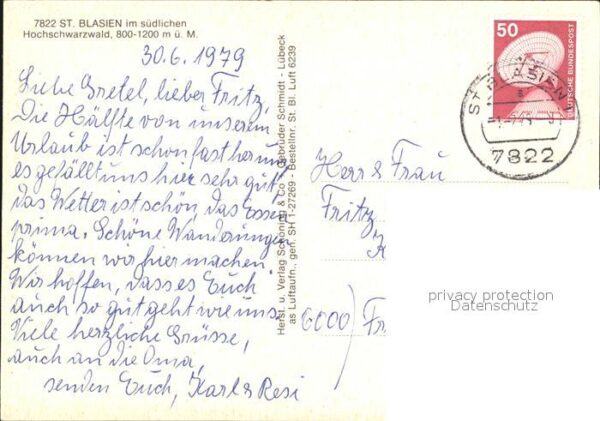 7822 ST. BLASIEN im südlichen
Hochschwarzwald, 800-1200 m ü. M.
30.6.1979
Liebe Gretel, lieber Fritz,
Die Hälfte von unserem
Urlaub ist schon fast herum
es gefällt uns hier sehr gut,
das Wetter ist schön, das Essen
prima. Schöne Wanderungen
können wir hier machen.
Wir hoffen, dass es Euch
auch so gut geht wie uns.
Viele herzliche Grüsse,
auch an die Oma,
senden Euch, Karl & Resi
Herst. u. Verlag Schöning & Co + Gebrüder Schmidt - Lübeck
as Luftaufn., gen. SH 1-27269 - Bestellnr. St. Bl. Luft 6239
50
DEUTSCHE BUNDESPOST
ST. BLASIEN 1
7822
Herr & Frau
Fritz
K
6000 Fr
privacy protection
Datenschutz